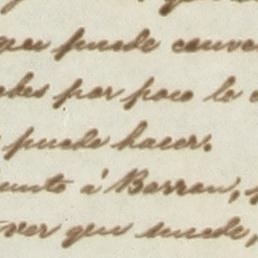 que puede conve
des por poco le
puede hacer.
unto á Barran,
ver que sucede,